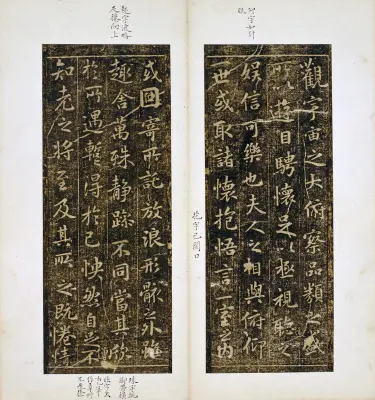 觀宇宙之大俯察品類之盛
所以遊目騁懷足以極視聽之
娛信可樂也夫人之相與俯仰
一世或取諸懷抱悟言一室之內
抱字已開口
或因寄所託放浪形骸之外雖
趣舍萬殊靜躁不同當其欣
於所遇暫得於己怏然自足不
知老之將至及其所之既惓情